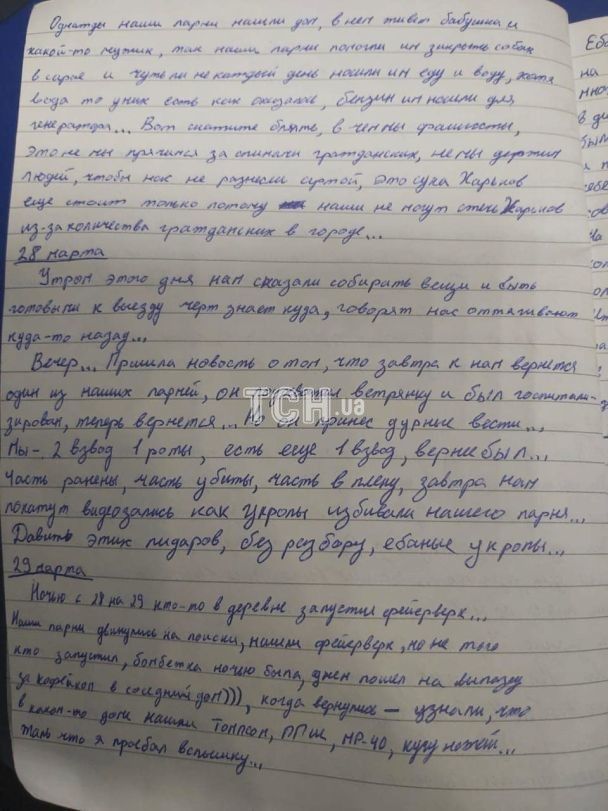 Однажды наши парни нашли дом, в нем живет бабушка и
какой-то мужик, так наши парни помогли им закрыть собак
в сарае и чуть ли не каждый день носили им еду и воду, хотя
вода то у них есть как оказалось, бензин им носили для
генератора... Вот скажите блять, в чем мы фашисты,
это не мы прячимся за спинами гражданских, не мы держим
людей, чтобы нас не разнесли артой, это сука Харьков
еще стоит только потому наши не могут стечь Харьков
из-за количества гражданских в городе...
28 марта
Утром этого дня нам сказали собирать вещи и быть
готовыми к выезду черт знает куда, говорят нас оттягивают
куда-то назад...
Вечер... Пришла новость о том, что завтра к нам вернется
один из наших парней, он ветрянку и был госпитали-
зирован, теперь вернется... Но он принес дурные вести...
Мы - 2 взвод 1 роты, есть еще 1 взвод, вернее был...
Часть ранены, часть убиты, часть в плену, завтра нам
покажут видеозапись как укропы избивали нашего парня...
Давить этих пидаров, без разбору, ебаные укропы...
29 марта
Ночью с 28 на 29 кто-то в деревне запустил фейерверк...
Наши парни двинулись на поиски, нашли фейерверк, но не того
кто запустил, бомбежка ночью была, днем пошел на вылазку
за кофейком в соседний дом))), когда вернулись — узнали, что
в каком-то доме нашли Томпсон, ППШ, МР-40, кучу ножей...
Жаль что я проебал вспышку...
ТСН.ua
Еба
на
мног
В де
был